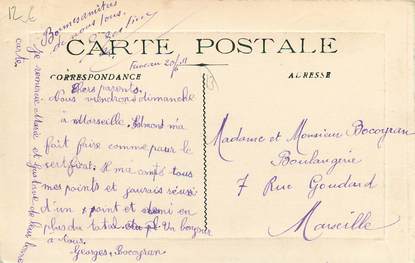 12 €
Bonnes amitiés
de nous tous.
CARTE POSTALE
Fuveau 20/5/11
CORRESPONDANCE
ADRESSE
Chers parents.
Nous viendrons dimanche
à Marseille. m'a
fait faire comme pour le
certificat. Il m'a tous
mes points et j'aurais réussi
d'un point et demi en
plus du total. Un bonjour
à tous.
Georges Bocoyran
Je remercie et Gustave de leur bonne
carte.
Madame et Monsieur Bocoyran
Boulangerie
7 Rue Goudard
Marseille